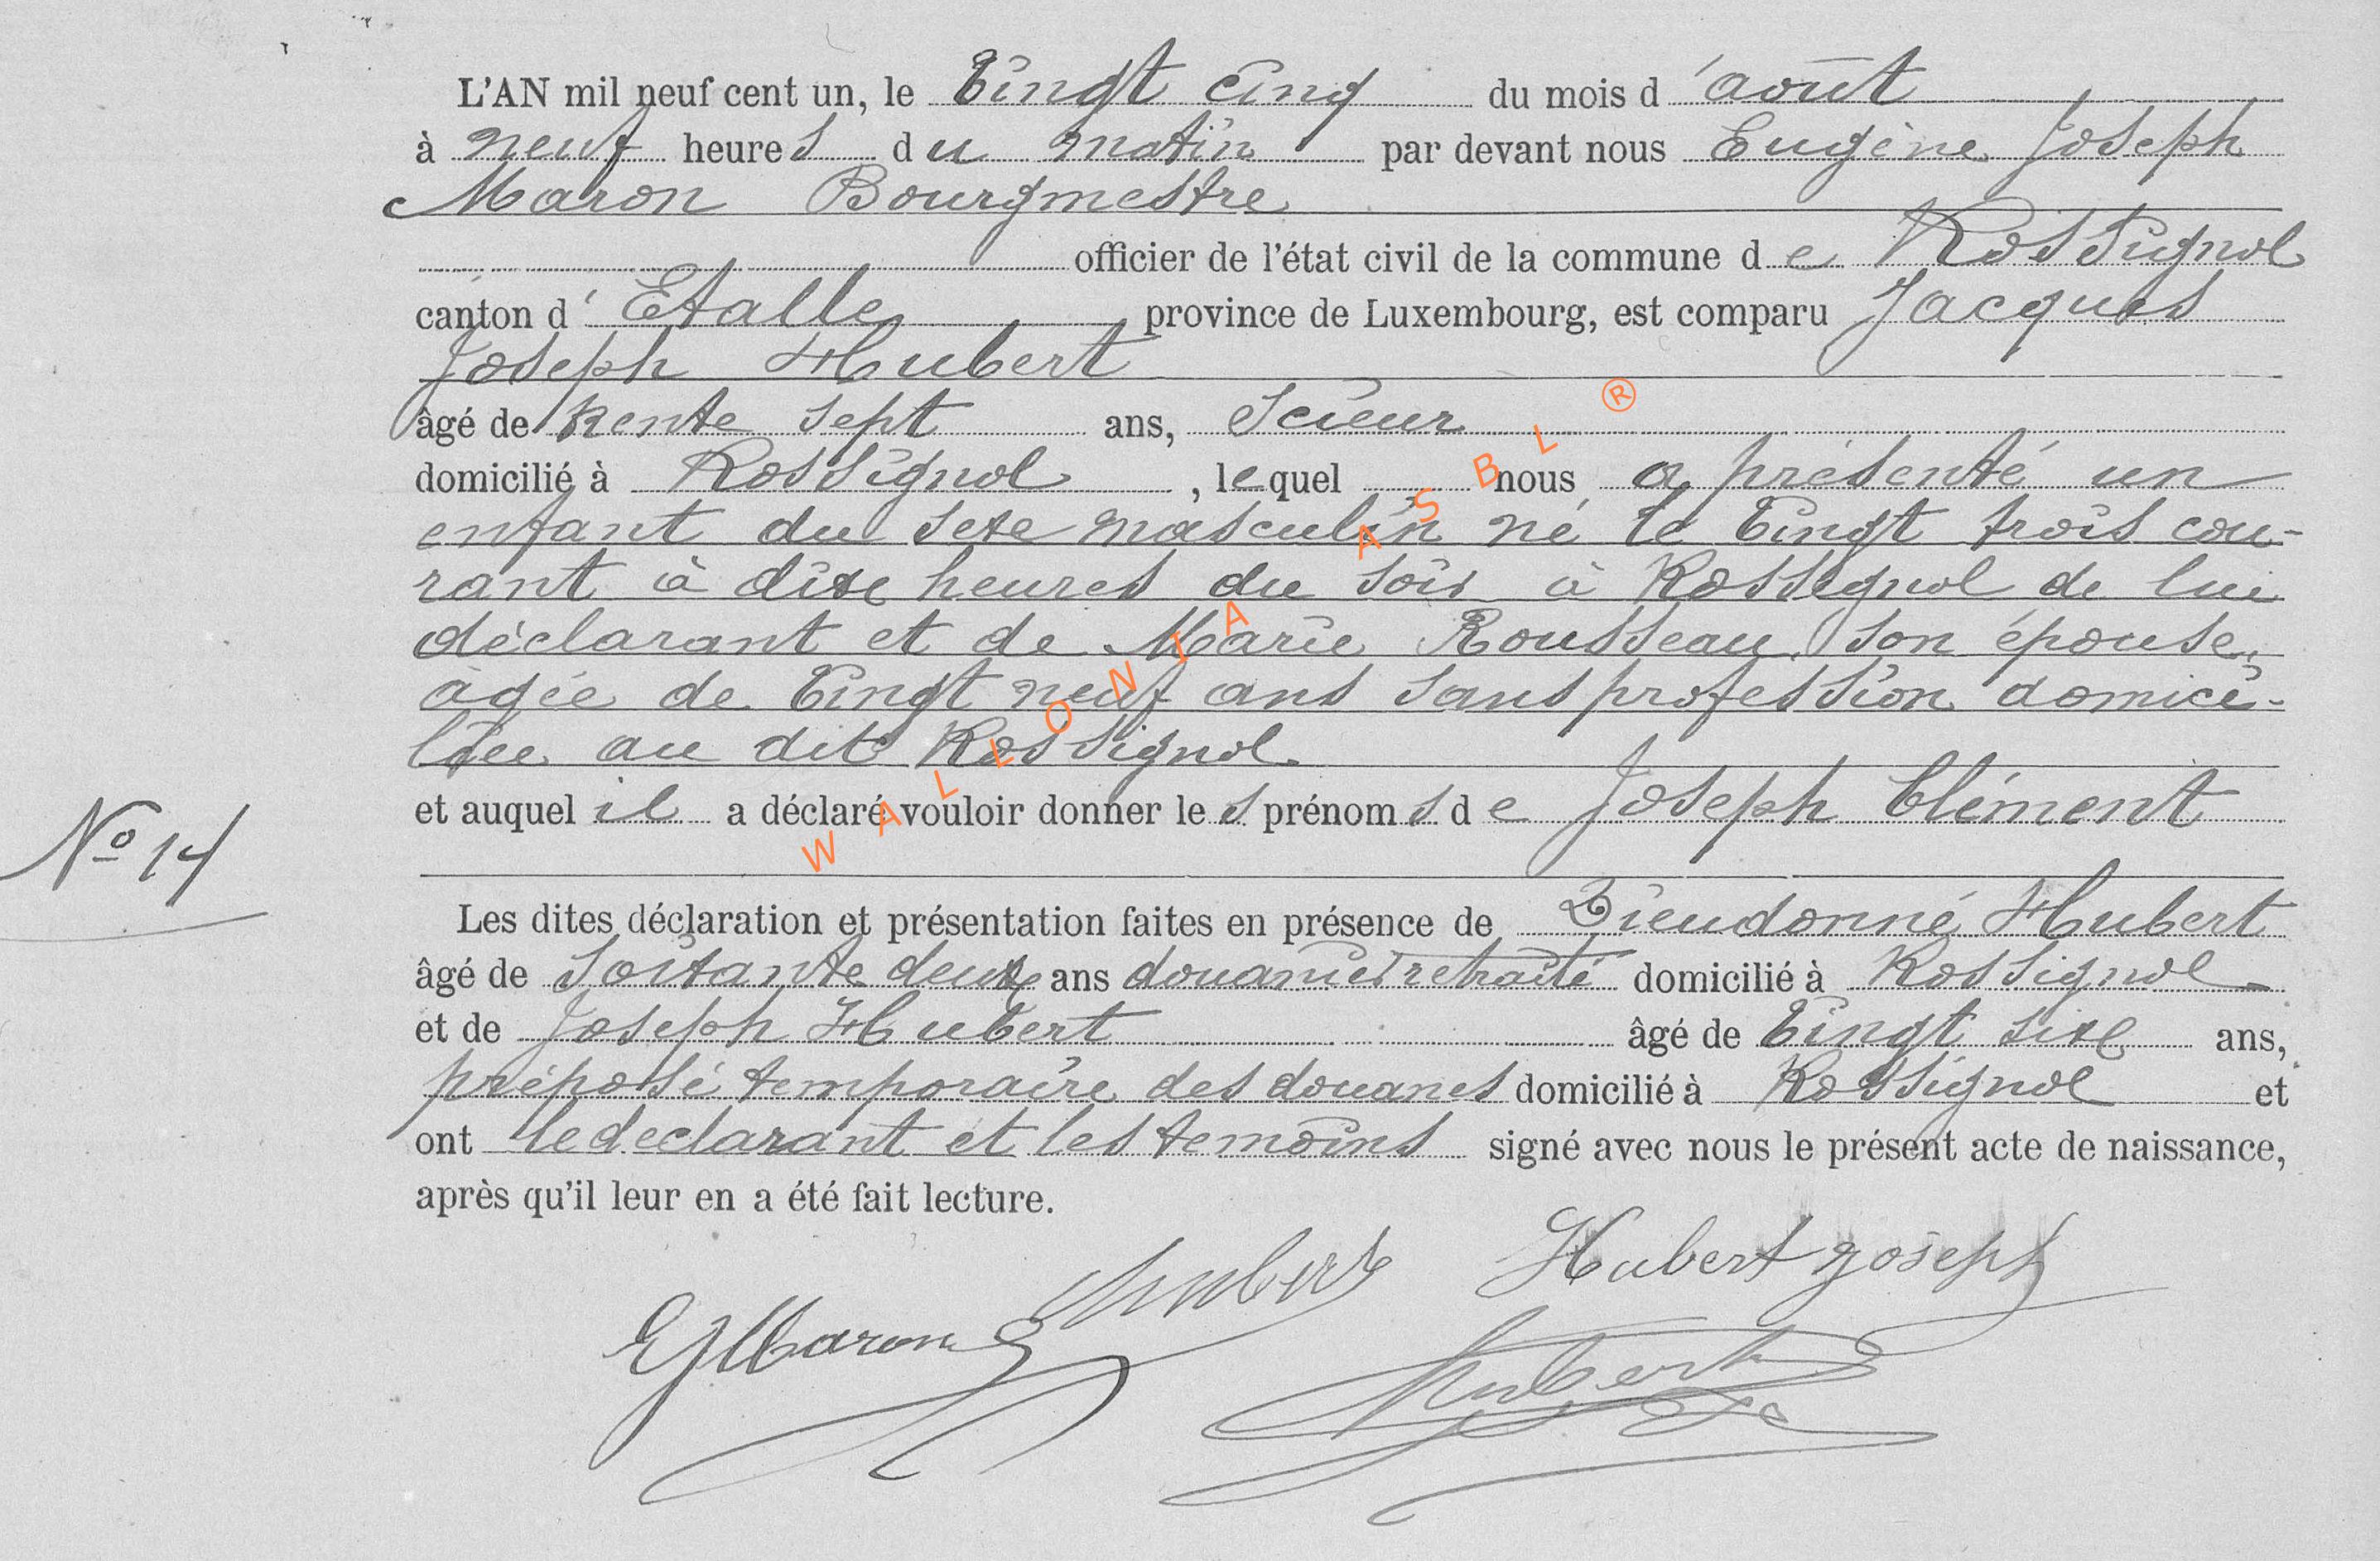 L'AN mil neuf cent un, le Vingt cinq du mois d'août
à neuf heures du matin par devant nous Eugène Joseph
Maron Bourgmestre
officier de l'état civil de la commune de Rossignol
canton d'Etalle province de Luxembourg, est comparu Jacques
Joseph Hubert
âgé de trente sept ans, Scieur
domicilié à Rossignol, lequel nous a présenté un
enfant du sexe masculin né le Vingt trois cou-
rant à dixe heures du soir à Rossignol de lui
déclarant et de Marie Rousseau son épouse,
agée de Vingt neuf ans sans profession domici-
liée au dit Rossignol
et auquel il a déclaré vouloir donner les prénoms de Joseph Clément
No 14
Les dites déclaration et présentation faites en présence de Dieudonné Hubert
âgé de Soixante deux ans douanier retraité domicilié à Rossignol
et de Joseph Hubert âgé de Vingt six ans,
préposé temporaire des douanes domicilié à Rossignol et
ont le declarant et les temoins signé avec nous le présent acte de naissance,
après qu'il leur en a été fait lecture.
Hubert Hubert Joseph
EJMaron
Hubert
WALLONIA ASBL ®